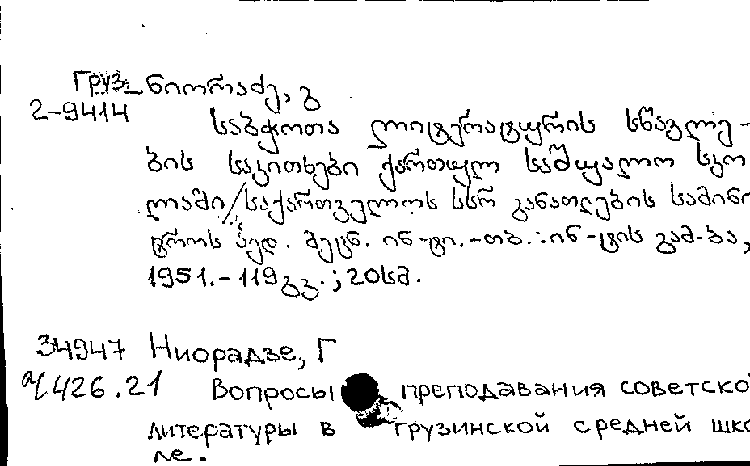 Груз. ნიორაძე, გ
2-9414
საბჭოთა ლიტერატურის სწავლე-
ბის საკითხები ქართულ საშუალო სკო
ლაში/საქართველოს სსრ განათლების სამინი
ტროს პედ. მეცნ. ინ-ტი.-თბ.:ინ-ტის გამ-ბა,
1951.-119გვ.;20სმ.
34947 Ниорадзе, Г
426.21 Вопросы преподавания советско
литературы в грузинской средней шко
ле.